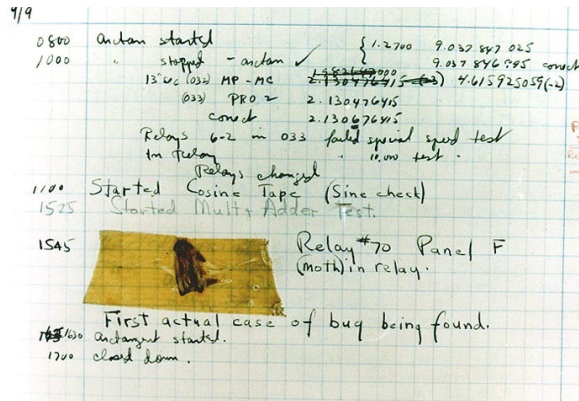 9/9
0800 arctan started { 1.2700 9.037 847 025
1000 " stopped - arctan ✓ 9.037 846 995 correct
13"uc (032) MP - MC 2.130476415 (-3) 4.615925059(-2)
(033) PRO 2 2.130476415
correct 2.130676415
Relays 6-2 in 033 failed special speed test
in Relay " 10,000 test.
Relays changed
1100 Started Cosine Tape (Sine check)
1525 Started Mult + Adder Test.
1545 Relay #70 Panel F
(moth) in relay.
First actual case of bug being found.
1630 arctangent started.
1700 closed down.